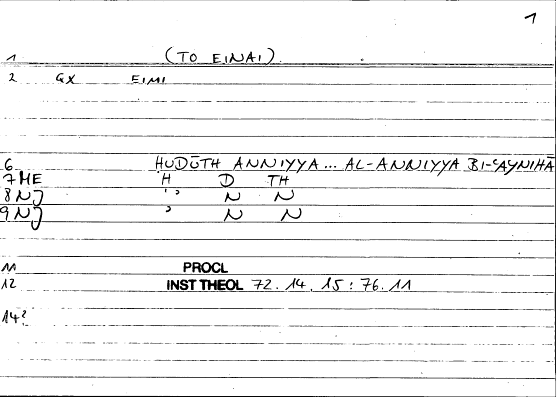 1
1 (TO EINAI)
2 GX EIMI
6 HUDŪTH ANNIYYA... AL-ANNIYYA BI-ʿAYNIHĀ
7 ME H D TH
8 NJ ʾʾ N N
9 NJ ʾ N N
11 PROCL
12 INST THEOL 72.14.15:76.11
14?